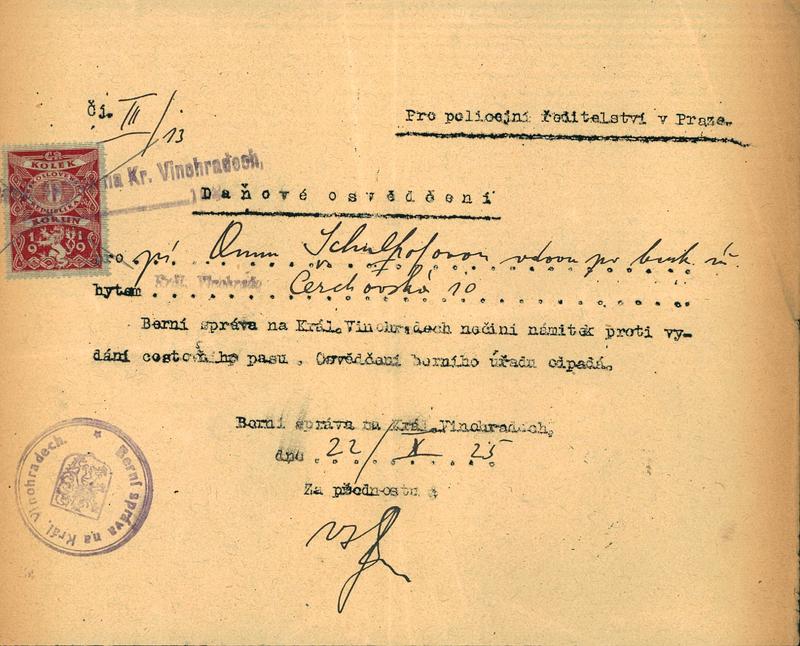 Čj. III/13
Pro policejní ředitelství v Praze.
na Kr. Vinohradech,
KOLEK
KORUN
1919
Daňové osvědčení
pro pí. Annu Schulhofovou vdovu po bank. ú.
bytem Čerchovská 10
Berní správa na Král.Vinohradech nečiní námitek proti vy-
dání cestovního pasu . Osvědčení berního úřadu odpadá.
Berní správa na Král.Vinohradech,
dne 22/X 25
Za přednostu :
Berní správa na Král. Vinohradech.